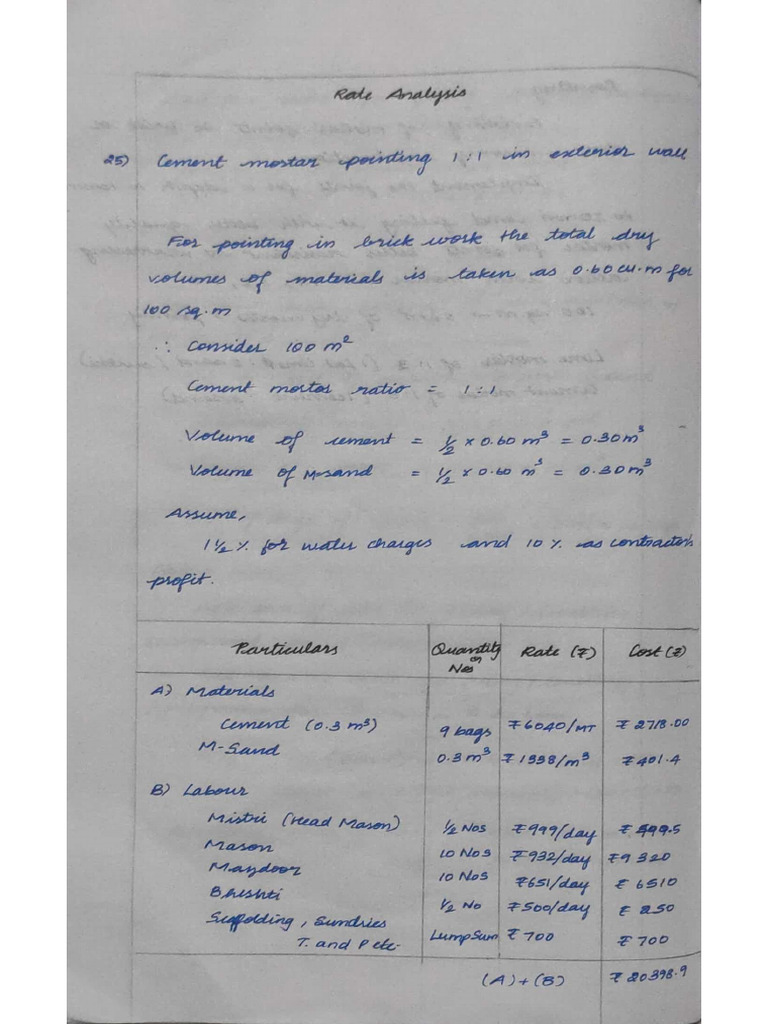 Rate Analysis
25) Cement mortar pointing 1:1 in exterior wall
For pointing in brick work the total dry
volumes of materials is taken as 0.60 cu.m for
100 sq.m
∴ Consider 100 m²
Cement mortor ratio = 1:1
Volume of cement = 1/2 x 0.60 m³ = 0.30 m³
Volume of M-sand = 1/2 x 0.60 m³ = 0.30 m³
Assume,
1 1/2 % for water charges and 10 % as contractor's
profit.
Particulars Quantity or Nos Rate (₹) Cost (₹)
A) Materials
Cement (0.3 m³) 9 bags ₹ 6040/MT ₹ 2718.00
M-Sand 0.3 m³ ₹ 1338/m³ ₹ 401.4
B) Labour
Mistri (Head Mason) 1/2 Nos ₹ 999/day ₹ 499.5
Mason 10 Nos ₹ 932/day ₹ 9320
Mazdoor 10 Nos ₹ 651/day ₹ 6510
Bhishti 1/2 No ₹ 500/day ₹ 250
Scaffolding, Sundries
T. and P etc. Lump Sum ₹ 700 ₹ 700
(A) + (B) ₹ 20398.9